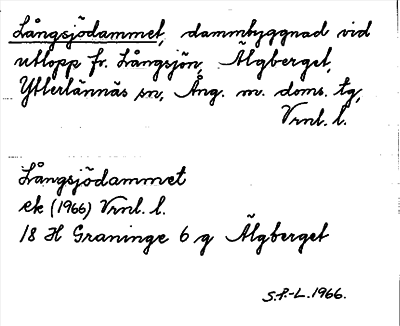 Långsjödammet, dammbyggnad vid
utlopp fr. Långsjön, Älgberget,
Ytterlännäs sn, Ång. m. doms. tg,
Vrnl. l.
Långsjödammet
ek (1966) Vrnl. l.
18 H Graninge 6 g Älgberget
S.P.-L. 1966.